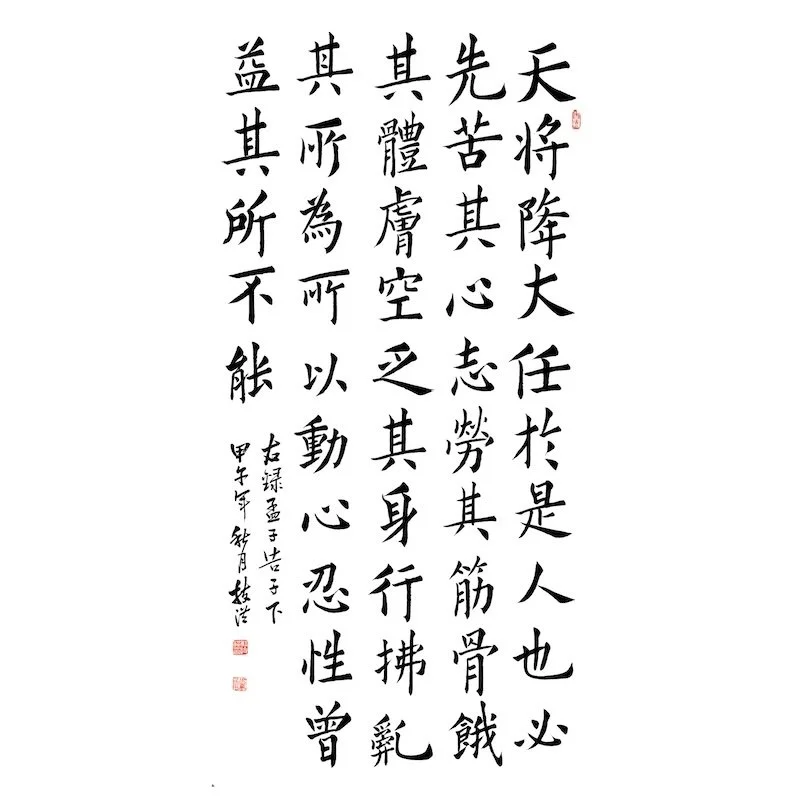 天將降大任於是人也必
先苦其心志勞其筋骨餓
其體膚空乏其身行拂亂
其所為所以動心忍性曾
益其所不能
右録孟子告子下
甲午年秋月